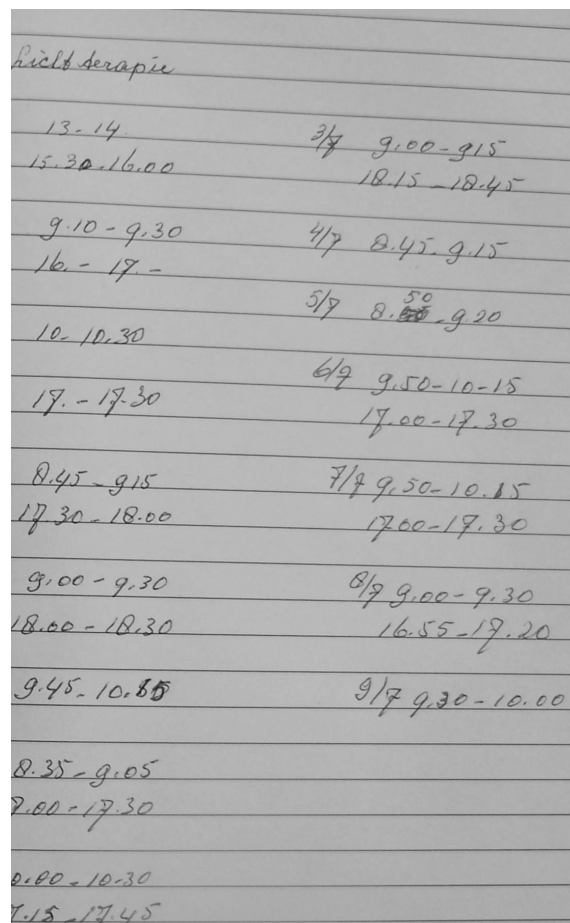 Lichttherapie
13-14
15.30-16.00
9.10-9.30
16.- 17.-
10-10.30
17.-17.30
8.45-915
17.30-18.00
9.00-9.30
18.00-18.30
9.45-10.15
8.35-9.05
.00-17.30
.00-10-30
7.15-17.45
3/7 9.00-915
18.15-18.45
4/7 8.45-9.15
5/7 8.50-9.20
6/7 9.50-10-15
17.00-17.30
7/7 9.50-10.15
1700-17.30
8/7 9.00-9.30
16.55-17.20
9/7 9.30-10.00